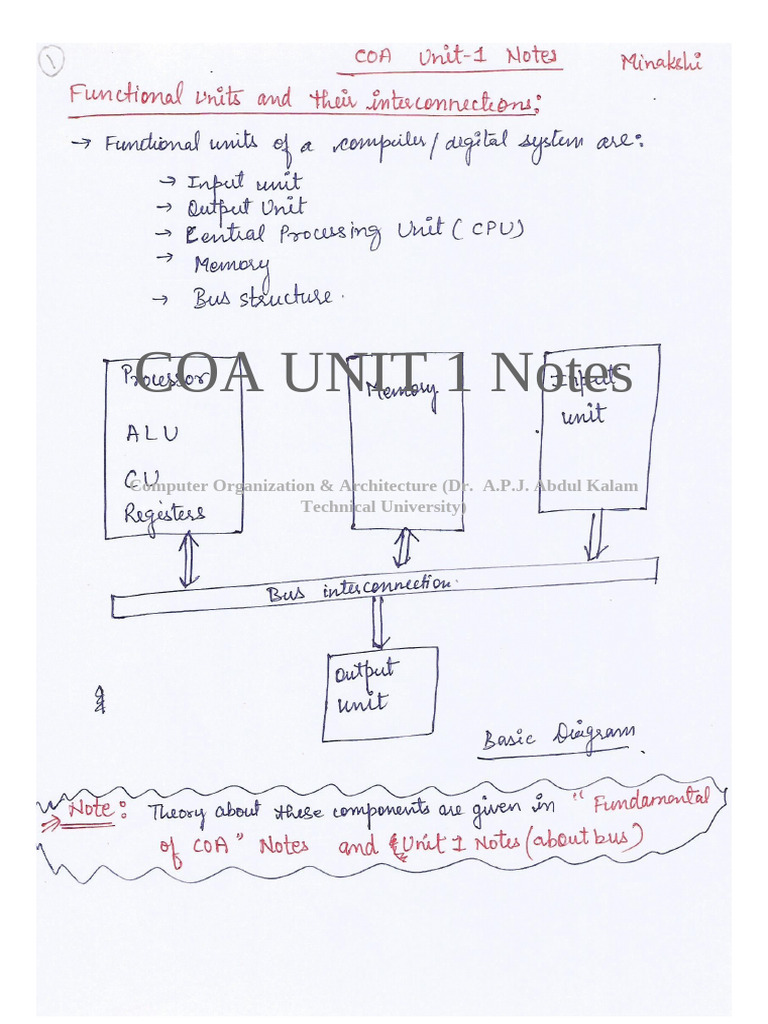 1
COA Unit-1 Notes
Minakshi
Functional units and their interconnections:
→ Functional units of a computer/digital system are:
→ Input unit
→ Output Unit
→ Central Processing Unit (CPU)
→ Memory
→ Bus structure.
COA UNIT 1 Notes
Processor
ALU
CU
Registers
Memory
Input
unit
Computer Organization & Architecture (Dr. A.P.J. Abdul Kalam
Technical University)
Bus interconnection.
Output
unit
Basic Diagram.
⇒ Note: Theory about these components are given in "Fundamental
of COA" Notes and Unit 1 Notes (about bus)